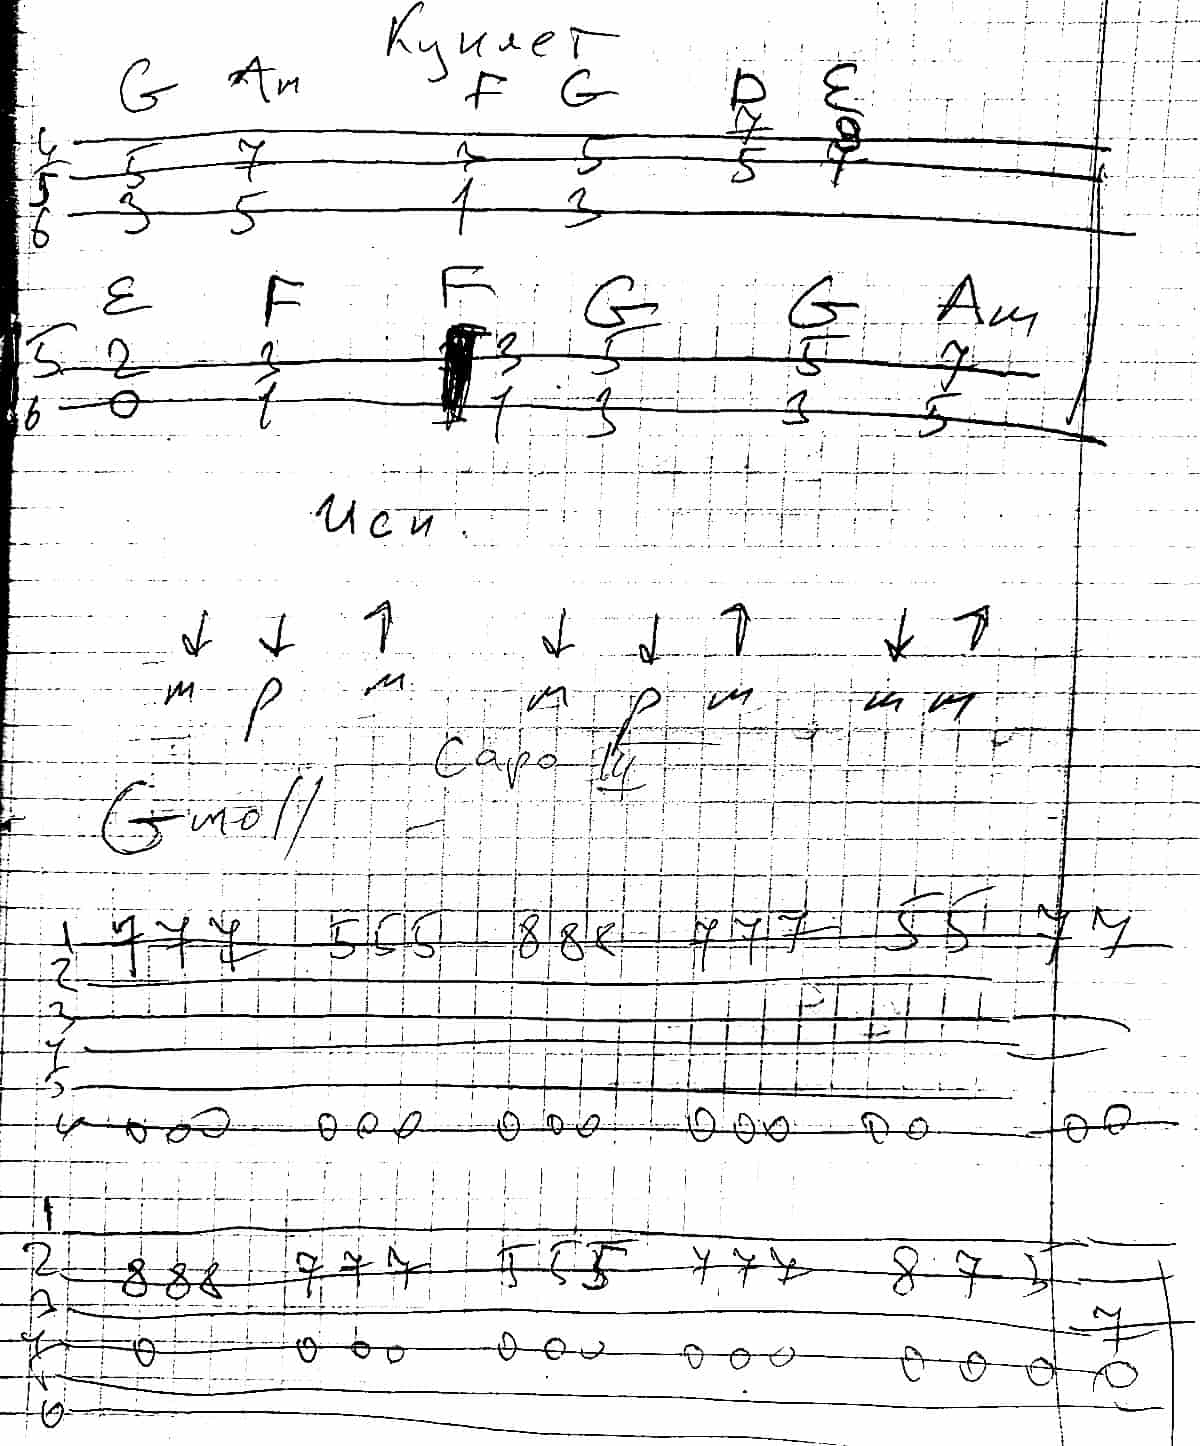 Куплет
G Am F G D E
4 7 9
5 5 7 3 5 5 7
6 3 5 1 3
E F F G G Am
5 2 3 3 5 5 7
6 0 1 1 3 3 5
Исп.
↓ ↓ ↑ ↓ ↓ ↑ ↓ ↑
m p m m p m m m
Capo
G-moll -
1 7 7 7 5 5 5 8 8 8 7 7 7 5 5 7 7
2
3
4
5
0 0 0 0 0 0 0 0 0 0 0 0 0 0 0 0
1
2 8 8 8 7 7 7 5 5 5 7 7 7 8 7 5
3 7
4 0 0 0 0 0 0 0 0 0 0 0 0 0 0
6